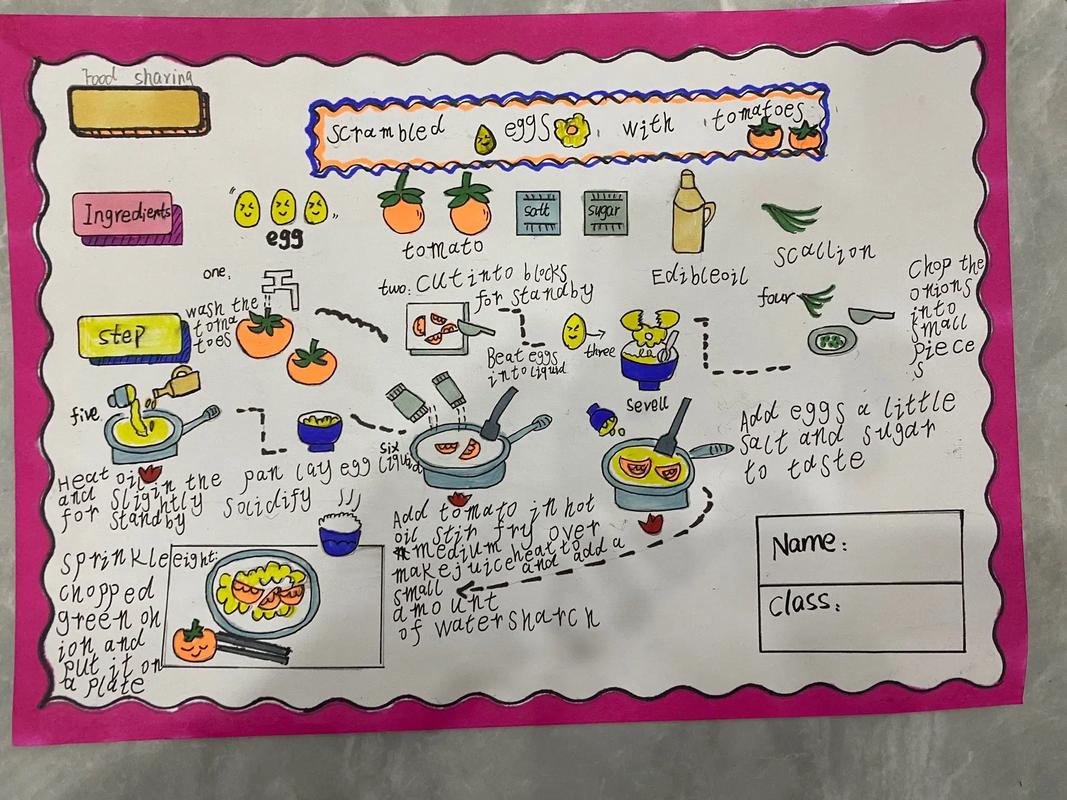 Food sharing
scrambled eggs with tomatoes
Ingredients
egg
tomato
salt
sugar
Edibleoil
scallion
step
one,
wash the
toma
toes
two: Cut into blocks
for standby
three
Beat eggs
into liquid
four
Chop the
onions
into
small
piece
s
five
Heat oil in the pan lay egg liquid
and slightly solidify
for standby
six
Add tomato in hot
oil stir fry over
medium heat to
make juice and add a
small
amount
of watersharch
Sevell
Add eggs a little
salt and sugar
to taste
eight:
sprinkle
chopped
green on
ion and
put it on
a plate
Name:
Class: